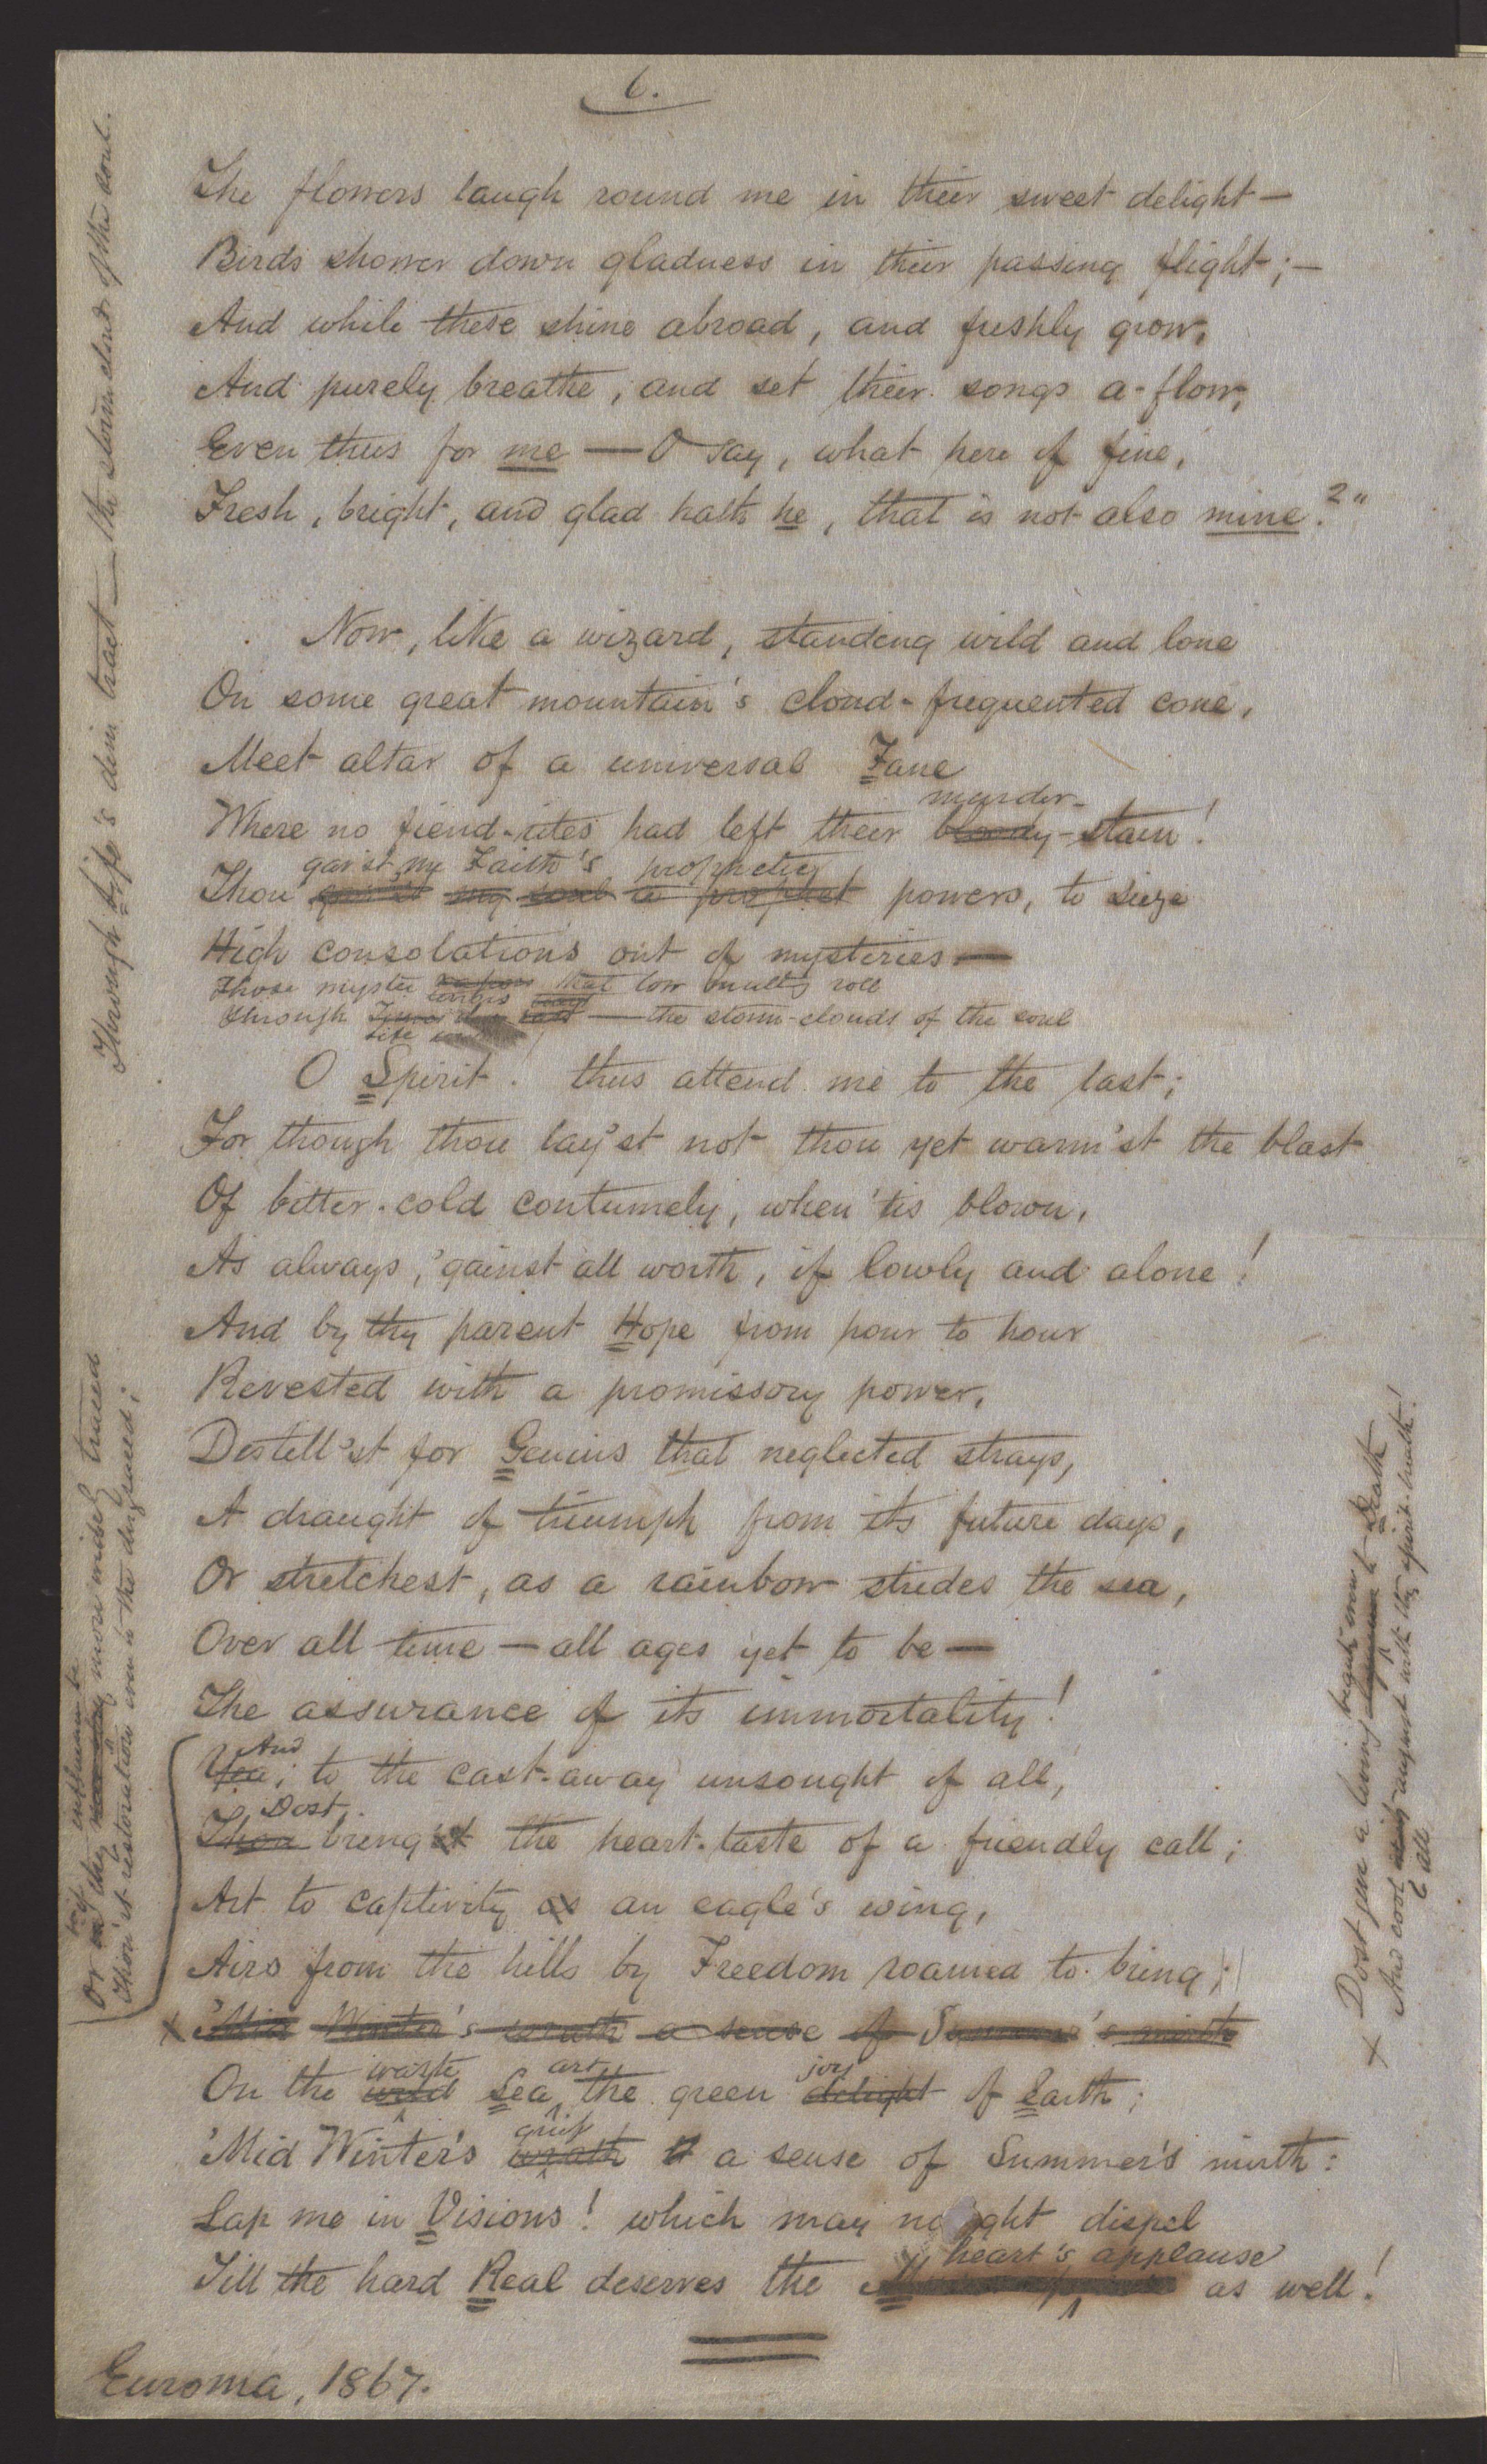 6.
The flowers laugh round me in their sweet delight —
Birds shower down gladness in their passing flight; —
And while these shine abroad, and freshly grow,
And purely breathe, and set their songs a-flow,
Even thus for me — O say, what here of fine,
Fresh, bright, and glad hath he, that is not also mine?"
Now, like a wizard, standing wild and lone
On some great mountain's cloud-frequented cone,
Meet altar of a universal Fane
murder-
Where no fiend-rites had left their bloody-stain!
gav'st my Faith's prophetic
Thou gav'st my soul a prophet powers, to seize
High consolations out of mysteries —
Those mystic that low mutt'ring roll
Through — the storm-clouds of the soul
Life
O Spirit! thus attend me to the last;
For though thou lay'st not thou yet warm'st the blast
Of bitter-cold contumely, when 'tis blown,
As always, 'gainst all worth, if lowly and alone!
And by thy parent Hope from hour to hour
Revested with a promissory power,
Distill'st for Genius that neglected strays,
A draught of triumph from its future days,
Or stretchest, as a rainbow strides the sea,
Over all time — all ages yet to be —
The assurance of its immortality!
And
Yea, to the cast-away unsought of all,
Dost
Thou bring'st the heart-taste of a friendly call;
Art to captivity as an eagle's wing,
Airs from the hills by Freedom roamed to bring;
x 'Mid Winter's wrath a sense of Summer's mirth
waste art joy
On the wild Sea, the green delight of Earth;
grief
'Mid Winter's wrath a sense of Summer's mirth:
Lap me in Visions! which may nought dispel
heart's applause
Till the hard Real deserves the as well!
Euroma, 1867.
Through Life's dim tract — the storm clouds of the soul.
Or if thy influence be
more widely traced
Thou'rt restoration even to the disgraced;
x Dost give a living bright to Death
And august with thy spirit-breath!
all